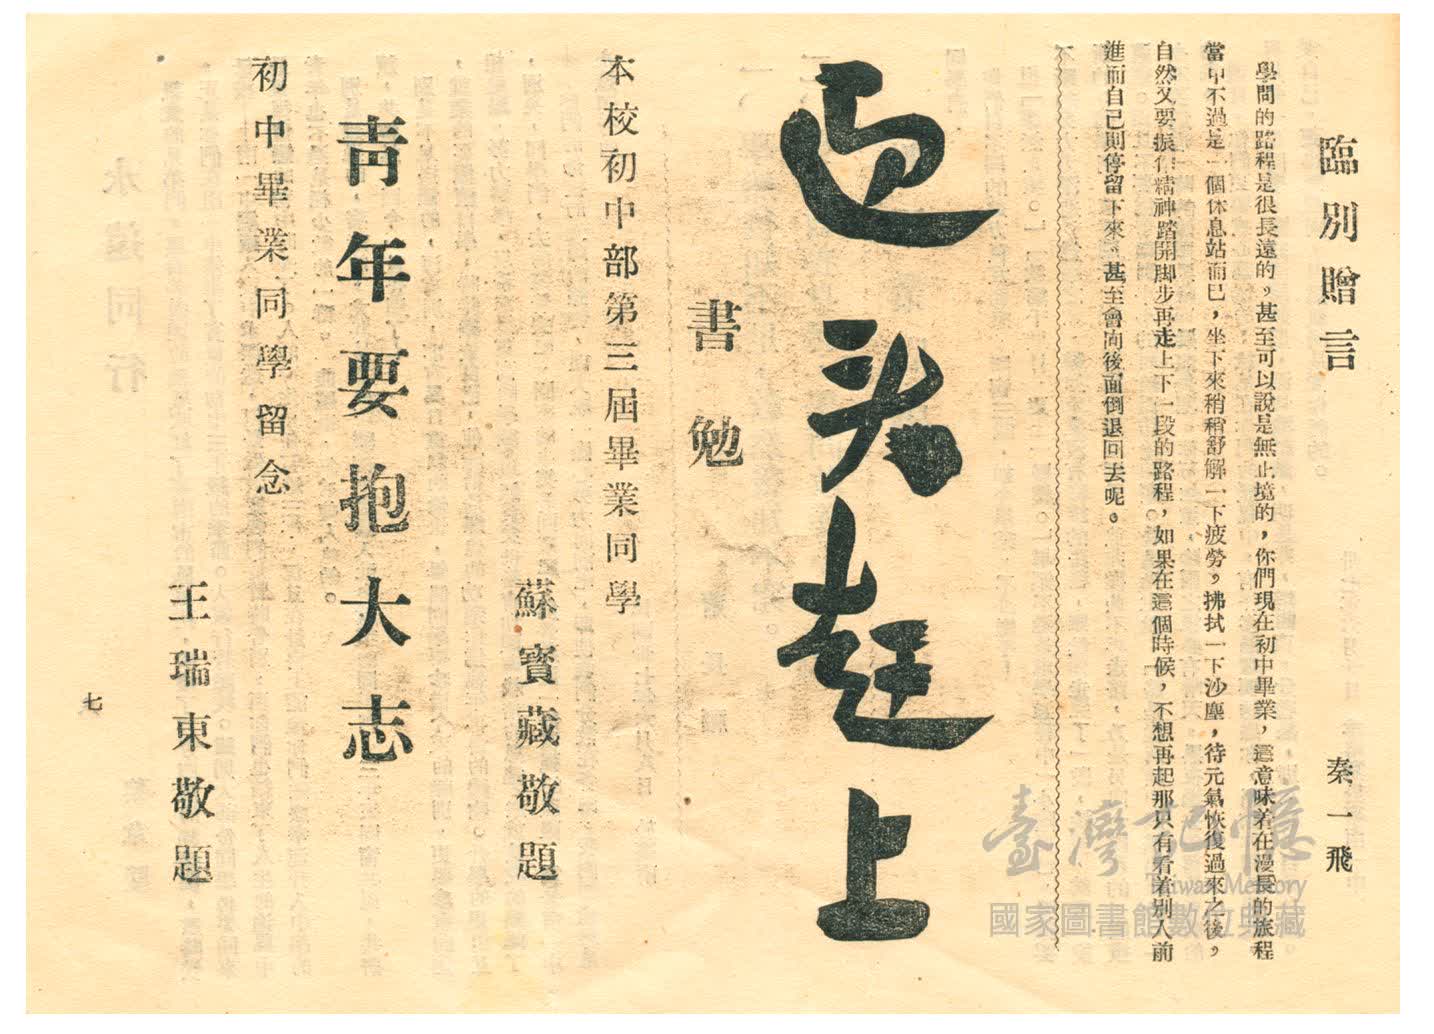 臨別贈言
秦一飛
學問的路程是很長遠的，甚至可以說是無止境的，你們現在初中畢業，這意味着在漫長的旅程
當中不過是一個休息站而已，坐下來稍稍舒解一下疲勞，拂拭一下沙塵，待元氣恢復過來之後，
自然又要振作精神踏開脚步再走上下一段的路程，如果在這個時候，不想再起那只有看着別人前
進而自己則停留下來，甚至會向後面倒退回去呢。
迎头赶上
書勉
本校初中部第三屆畢業同學
蘇寶藏敬題
靑年要抱大志
初中畢業同學留念
王瑞東敬題
七
臺灣記憶
Taiwan Memory
國家圖書館數位典藏